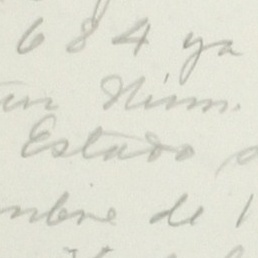 684 ya
Núm.
Estado
mbre de 1